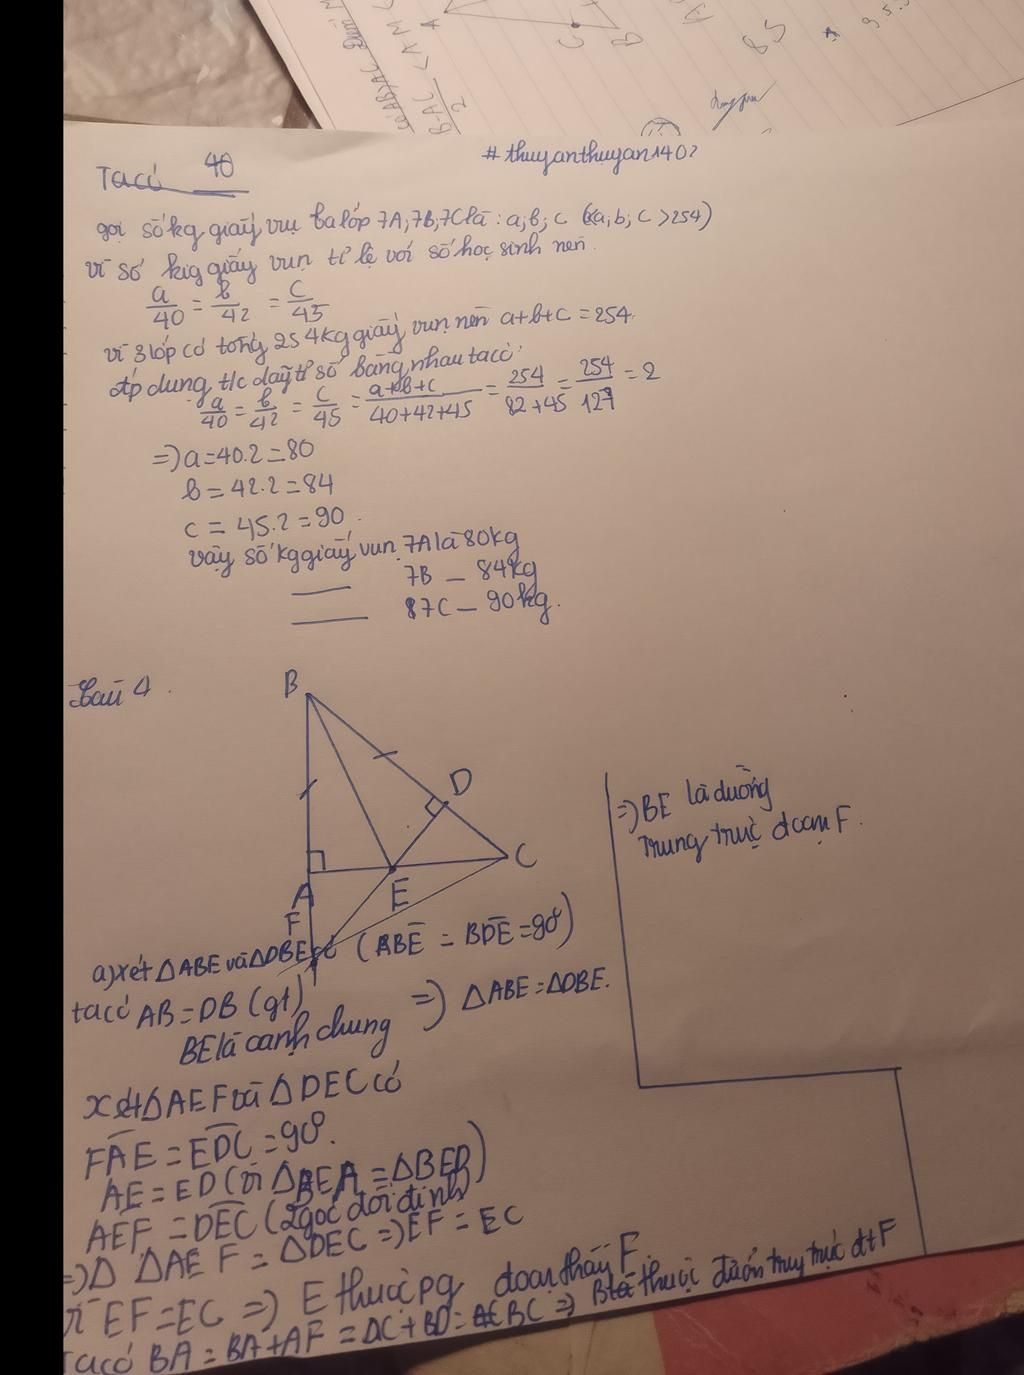 A
C
B
85
B-AC < AM <
2
Ta có 40
#thuyanthuyan1402
gọi số kg giấy vụ ba lớp 7A, 7B, 7C là : a; b; c (a; b; c > 254)
vì số kig giấy vụn tỉ lệ với số học sinh nên.
a/40 = b/42 = c/45
vì 3 lớp có tổng 254kg giấy vụn nên a+b+c = 254.
áp dung t/c dãy tỉ số bằng nhau ta có
a/40 = b/42 = c/45 = a+b+c/40+42+45 = 254/82+45 = 254/127 = 2
=) a = 40.2 = 80
b = 42.2 = 84
c = 45.2 = 90.
vậy số kg giấy vụn 7A là 80kg
7B — 84kg
7C — 90kg.
Bài 4.
B
D
A
E
C
F
=) BE là đường
Trung trực đoạn F.
a) xét △ABE và △DBE có (ABE = BDE = 90°)
ta có AB = DB (gt)
BE là cạnh chung
=) △ABE = △DBE.
xét △AEF và △DEC có
FAE = EDC = 90°.
AE = ED (vì △BEA = △BED)
AEF = DEC (2 góc đối đỉnh)
=) △ △AEF = △DEC =) EF = EC
vì EF = EC =) E thuộc pg đoạn thẳy F.
Ta có BA = BA + AF = DC + BD = BC =) B thuộc đườn truy trực đt F